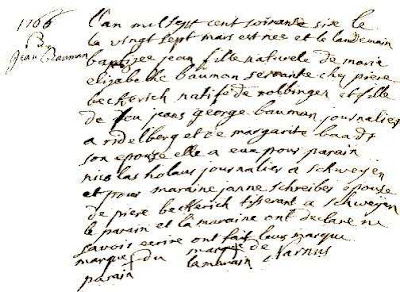 1766
B
Jean Bauman
L'an mil sept cent soixante six le
le vingt sept mars est née et le landemain
baptisée jean fille naturele de marie
elizabelle bauman servante chez piere
beckerich natife de robbingen et fille
de feu jean george bauman journalier
a ridelberg et de margarite baadt
son epouse elle a eu pour parain
nicolas holaus journalier a schweyen
et pour maraine janne schreiber épouse
de piere beckerich tisserant a schweyen
le parain et la maraine ont declaré ne
savoir ecrire ont fait leurs marque
marque du marque de
parain la maraine